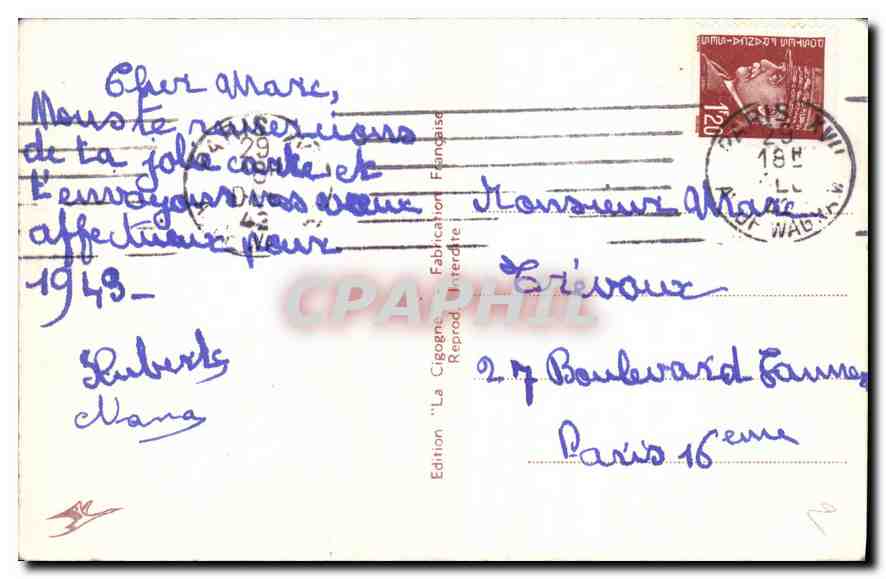 Cher Marc,
Nous te remercions
de ta jolie carte et
t'envoyons nos vœux
affectueux pour
1943-
Huberte
Nana
Edition "La Cigogne" - Fabrication Française
Reprod. Interdite
POSTES FRANÇAISES
1.20
PARIS XVII
29
18H
AV. DE WAGRAM
PARIS
29
Monsieur Marc
Trévoux
27 Boulevard
Paris 16eme
CPAPHIL